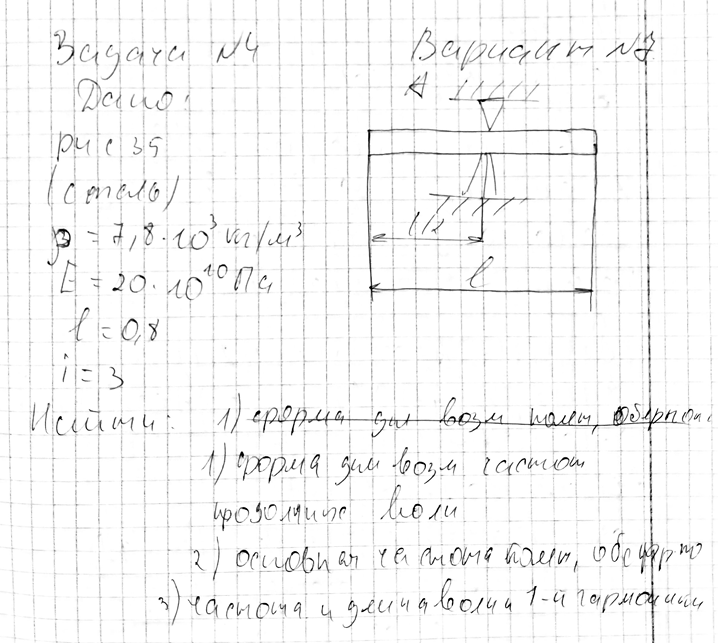 Задача №4
Вариант №7
Дано:
А
рис 35
(сталь)
ρ = 7,8·10³ кг/м³
E = 20·10¹⁰ Па
l = 0,8
i = 3
l/2
l
Найти:
1) форма для возм
1) форма для возм частот
продольных волн
2) основная частота
3) частота и длина волны 1-й гармоники